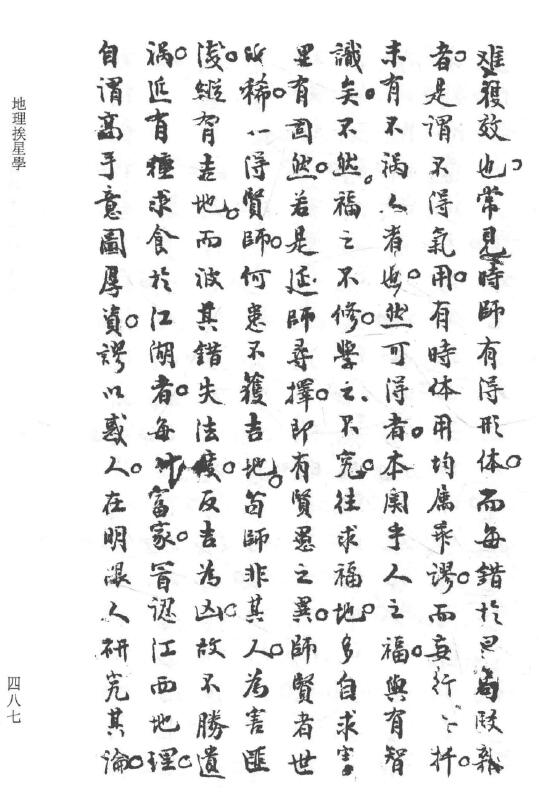 难獲效也常見時師有得形体而每錯於
者是謂不得氣用有時体用均属乖謬而妄行扦
未有不禍人者也然可得者本関乎人之福與有智
識矣不然福之不修學之不究往求福地多自求害
里有固然若是延師尋擇即有賢愚之異師賢者世
所稀一得賢師何患不獲吉地苟師非其人為害匪
浅縱有吉地而被其錯失法度反吉為凶故不勝遺
禍近有種求食於江湖者每叶富家冒認江西地理
自謂高手意圖厚資謬以惑人在明眼人研究其論
地理挨星學
四八七